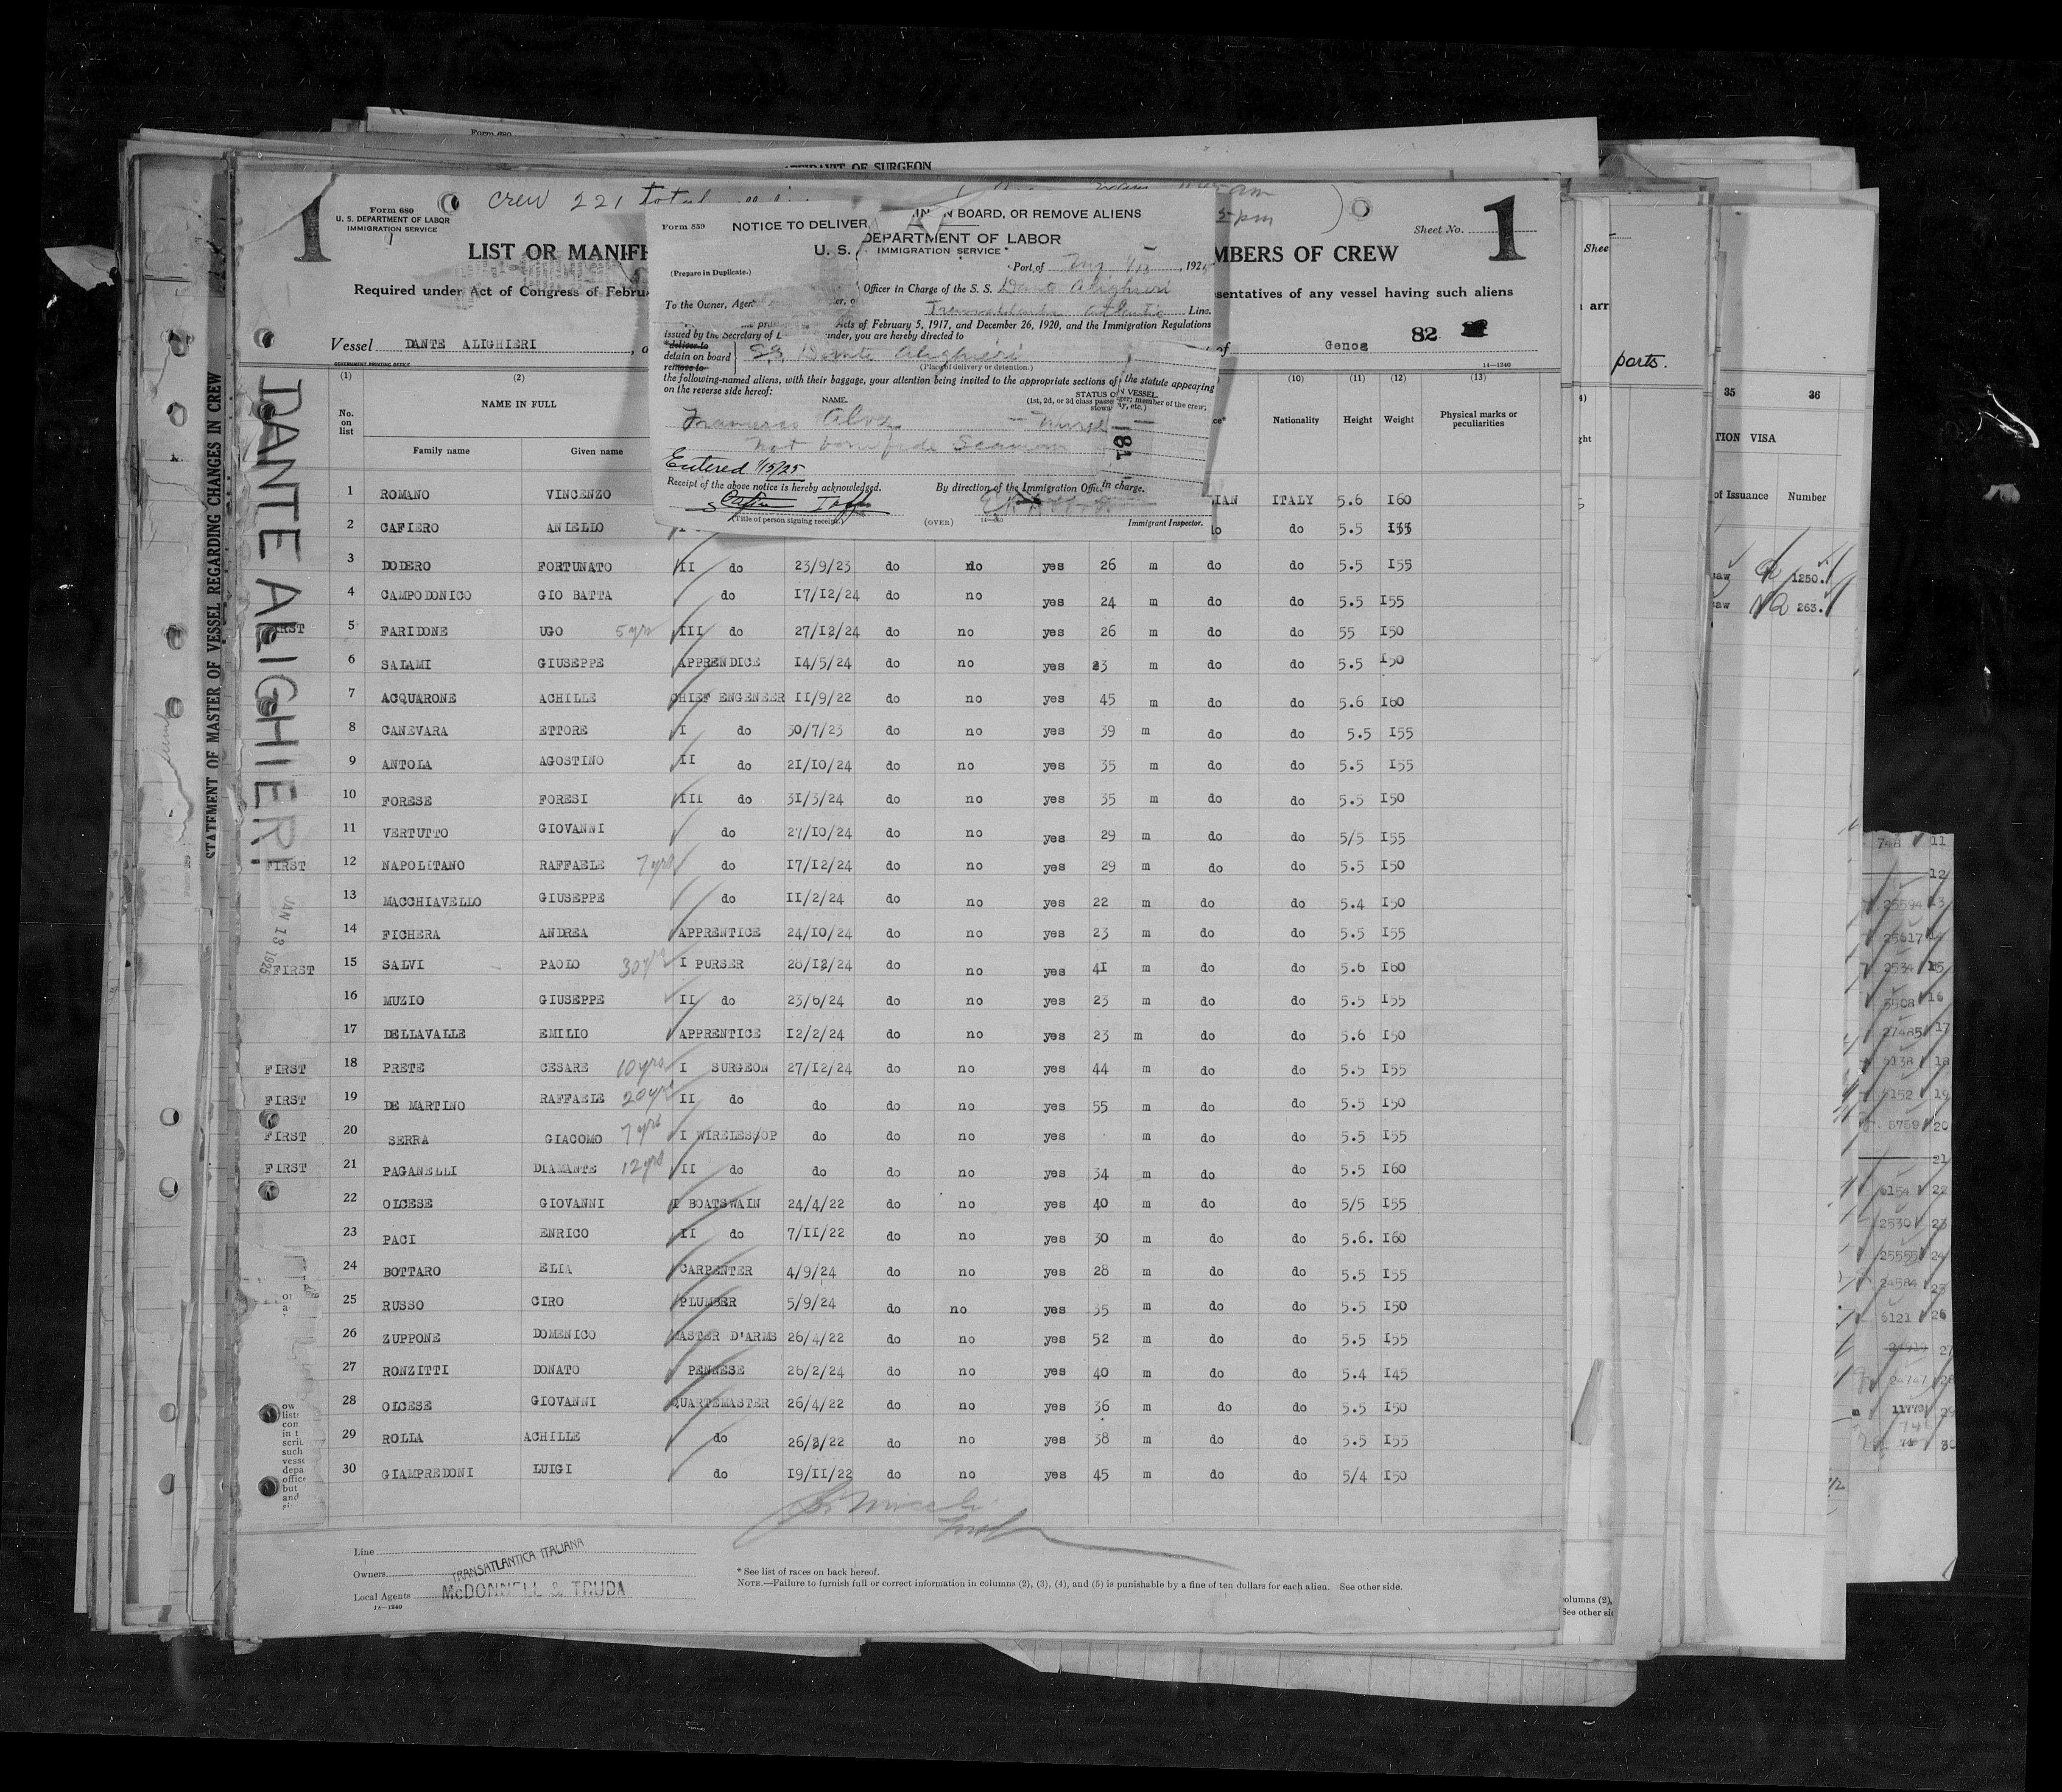 Form 680
AFFIDAVIT OF SURGEON
1
Form 680
U. S. DEPARTMENT OF LABOR
IMMIGRATION SERVICE
crew 221 total
5 pm
Sheet No. 1
LIST OR MANIF
MBERS OF CREW
Required under Act of Congress of Febru
sentatives of any vessel having such aliens
Vessel DANTE ALIGHIERI
of Genoa
82
GOVERNMENT PRINTING OFFICE
14—1240
Form 559
NOTICE TO DELIVER,
IN ON BOARD, OR REMOVE ALIENS
U. S. DEPARTMENT OF LABOR
IMMIGRATION SERVICE
(Prepare in Duplicate.)
Port of 192
Officer in Charge of the S. S. Dante Alighieri
To the Owner, Agen
Line.
Acts of February 5, 1917, and December 26, 1920, and the Immigration Regulations
issued by the Secretary of L under, you are hereby directed to
deliver to
detain on board S.S. Dante Alighieri
remove to
(Place of delivery or detention.)
the following-named aliens, with their baggage, your attention being invited to the appropriate sections of the statute appearing
on the reverse side hereof:
NAME.
STATUS ON VESSEL
(1st, 2d, or 3d class passenger; member of the crew; stowaway, etc.)
Francesco Alva — Nurse —
not bonafide Seaman
181
Entered 1/15/25
Receipt of the above notice is hereby acknowledged.
By direction of the Immigration Officer in charge.
(Title of person signing receipt.)
(OVER)
Immigrant Inspector.
(1) (2) (10) (11) (12) (13)
No. on list
NAME IN FULL
Family name Given name
Nationality Height Weight Physical marks or peculiarities
1 ROMANO VINCENZO IAN ITALY 5.6 I60
2 CAFIERO ANIELLO do do 5.5 I55
3 DODERO FORTUNATO II do 23/9/23 do no yes 26 m do do 5.5 I55
4 CAMPODONICO GIO BATTA do I7/I2/24 do no yes 24 m do do 5.5 I55
FIRST 5 FARIDONE UGO 5 yrs III do 27/I2/24 do no yes 26 m do do 55 I50
6 SALAMI GIUSEPPE APPRENDICE I4/5/24 do no yes 23 m do do 5.5 I50
7 ACQUARONE ACHILLE CHIEF ENGENEER II/9/22 do no yes 45 m do do 5.6 I60
8 CANEVARA ETTORE I do 30/7/23 do no yes 39 m do do 5.5 I55
9 ANTOLA AGOSTINO II do 2I/I0/24 do no yes 35 m do do 5.5 I55
10 FORESE FORESI III do 3I/3/24 do no yes 35 m do do 5.5 I50
11 VERTUTTO GIOVANNI do 27/I0/24 do no yes 29 m do do 5/5 I55
FIRST 12 NAPOLITANO RAFFAELE 7 yrs do I7/I2/24 do no yes 29 m do do 5.5 I50
13 MACCHIAVELLO GIUSEPPE do II/2/24 do no yes 22 m do do 5.4 I50
14 FICHERA ANDREA APPRENTICE 24/I0/24 do no yes 23 m do do 5.5 I55
FIRST 15 SALVI PAOLO 30 yrs I PURSER 28/I2/24 do no yes 4I m do do 5.6 I60
16 MUZIO GIUSEPPE II do 23/6/24 do no yes 23 m do do 5.5 I55
17 DELLAVALLE EMILIO APPRENTICE I2/2/24 do no yes 23 m do do 5.6 I50
FIRST 18 PRETE CESARE 10 yrs I SURGEON 27/I2/24 do no yes 44 m do do 5.5 I55
FIRST 19 DE MARTINO RAFFAELE 20 yrs II do do do no yes 55 m do do 5.5 I50
FIRST 20 SERRA GIACOMO 7 yrs I WIRELESS/OP do do no yes m do do 5.5 I55
FIRST 21 PAGANELLI DIAMANTE 12 yrs II do do do no yes 34 m do do 5.5 I60
22 OLCESE GIOVANNI I BOATSWAIN 24/4/22 do no yes 40 m do do 5/5 I55
23 PACI ENRICO II do 7/II/22 do no yes 30 m do do 5.6. I60
24 BOTTARO ELIA CARPENTER 4/9/24 do no yes 28 m do do 5.5 I55
25 RUSSO CIRO PLUMBER 5/9/24 do no yes 35 m do do 5.5 I50
26 ZUPPONE DOMENICO MASTER D'ARMS 26/4/22 do no yes 52 m do do 5.5 I55
27 RONZITTI DONATO PENNESE 26/2/24 do no yes 40 m do do 5.4 I45
28 OLCESE GIOVANNI QUARTEMASTER 26/4/22 do no yes 36 m do do 5.5 I50
29 ROLLA ACHILLE do 26/3/22 do no yes 38 m do do 5.5 I55
30 GIAMPREDONI LUIGI do I9/II/22 do no yes 45 m do do 5/4 I50
Line
Owners TRANSATLANTICA ITALIANA
Local Agents McDONNELL & TRUDA
14—1240
* See list of races on back hereof.
NOTE.—Failure to furnish full or correct information in columns (2), (3), (4), and (5) is punishable by a fine of ten dollars for each alien. See other side.
DANTE ALIGHIERI
JAN 13 1925
STATEMENT OF MASTER OF VESSEL REGARDING CHANGES IN CREW
Shee
arr
parts.
35 36
TION VISA
of Issuance Number
1250.
263.
olumns (2),
See other sid
748 11
12
25594 13
25617 14
2534 15
5508 16
27485 17
5138 18
5152 19
5759 20
21
5154 22
2530 23
25555 24
24584 25
5121 26
27
24747 28
29
30